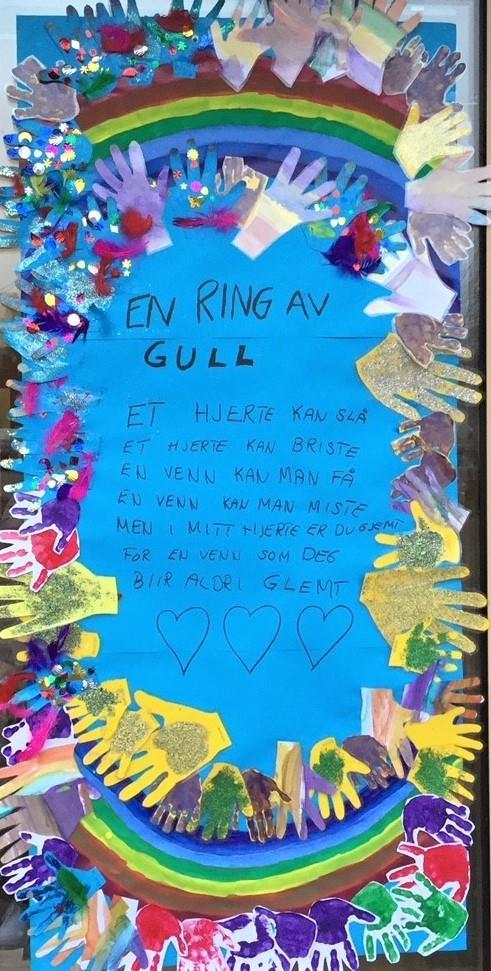 EN RING AV
GULL
ET HJERTE KAN SLÅ
ET HJERTE KAN BRISTE
EN VENN KAN MAN FÅ
EN VENN KAN MAN MISTE
MEN I MITT HJERTE ER DU GJEMT
FOR EN VENN SOM DEG
BLIR ALDRI GLEMT